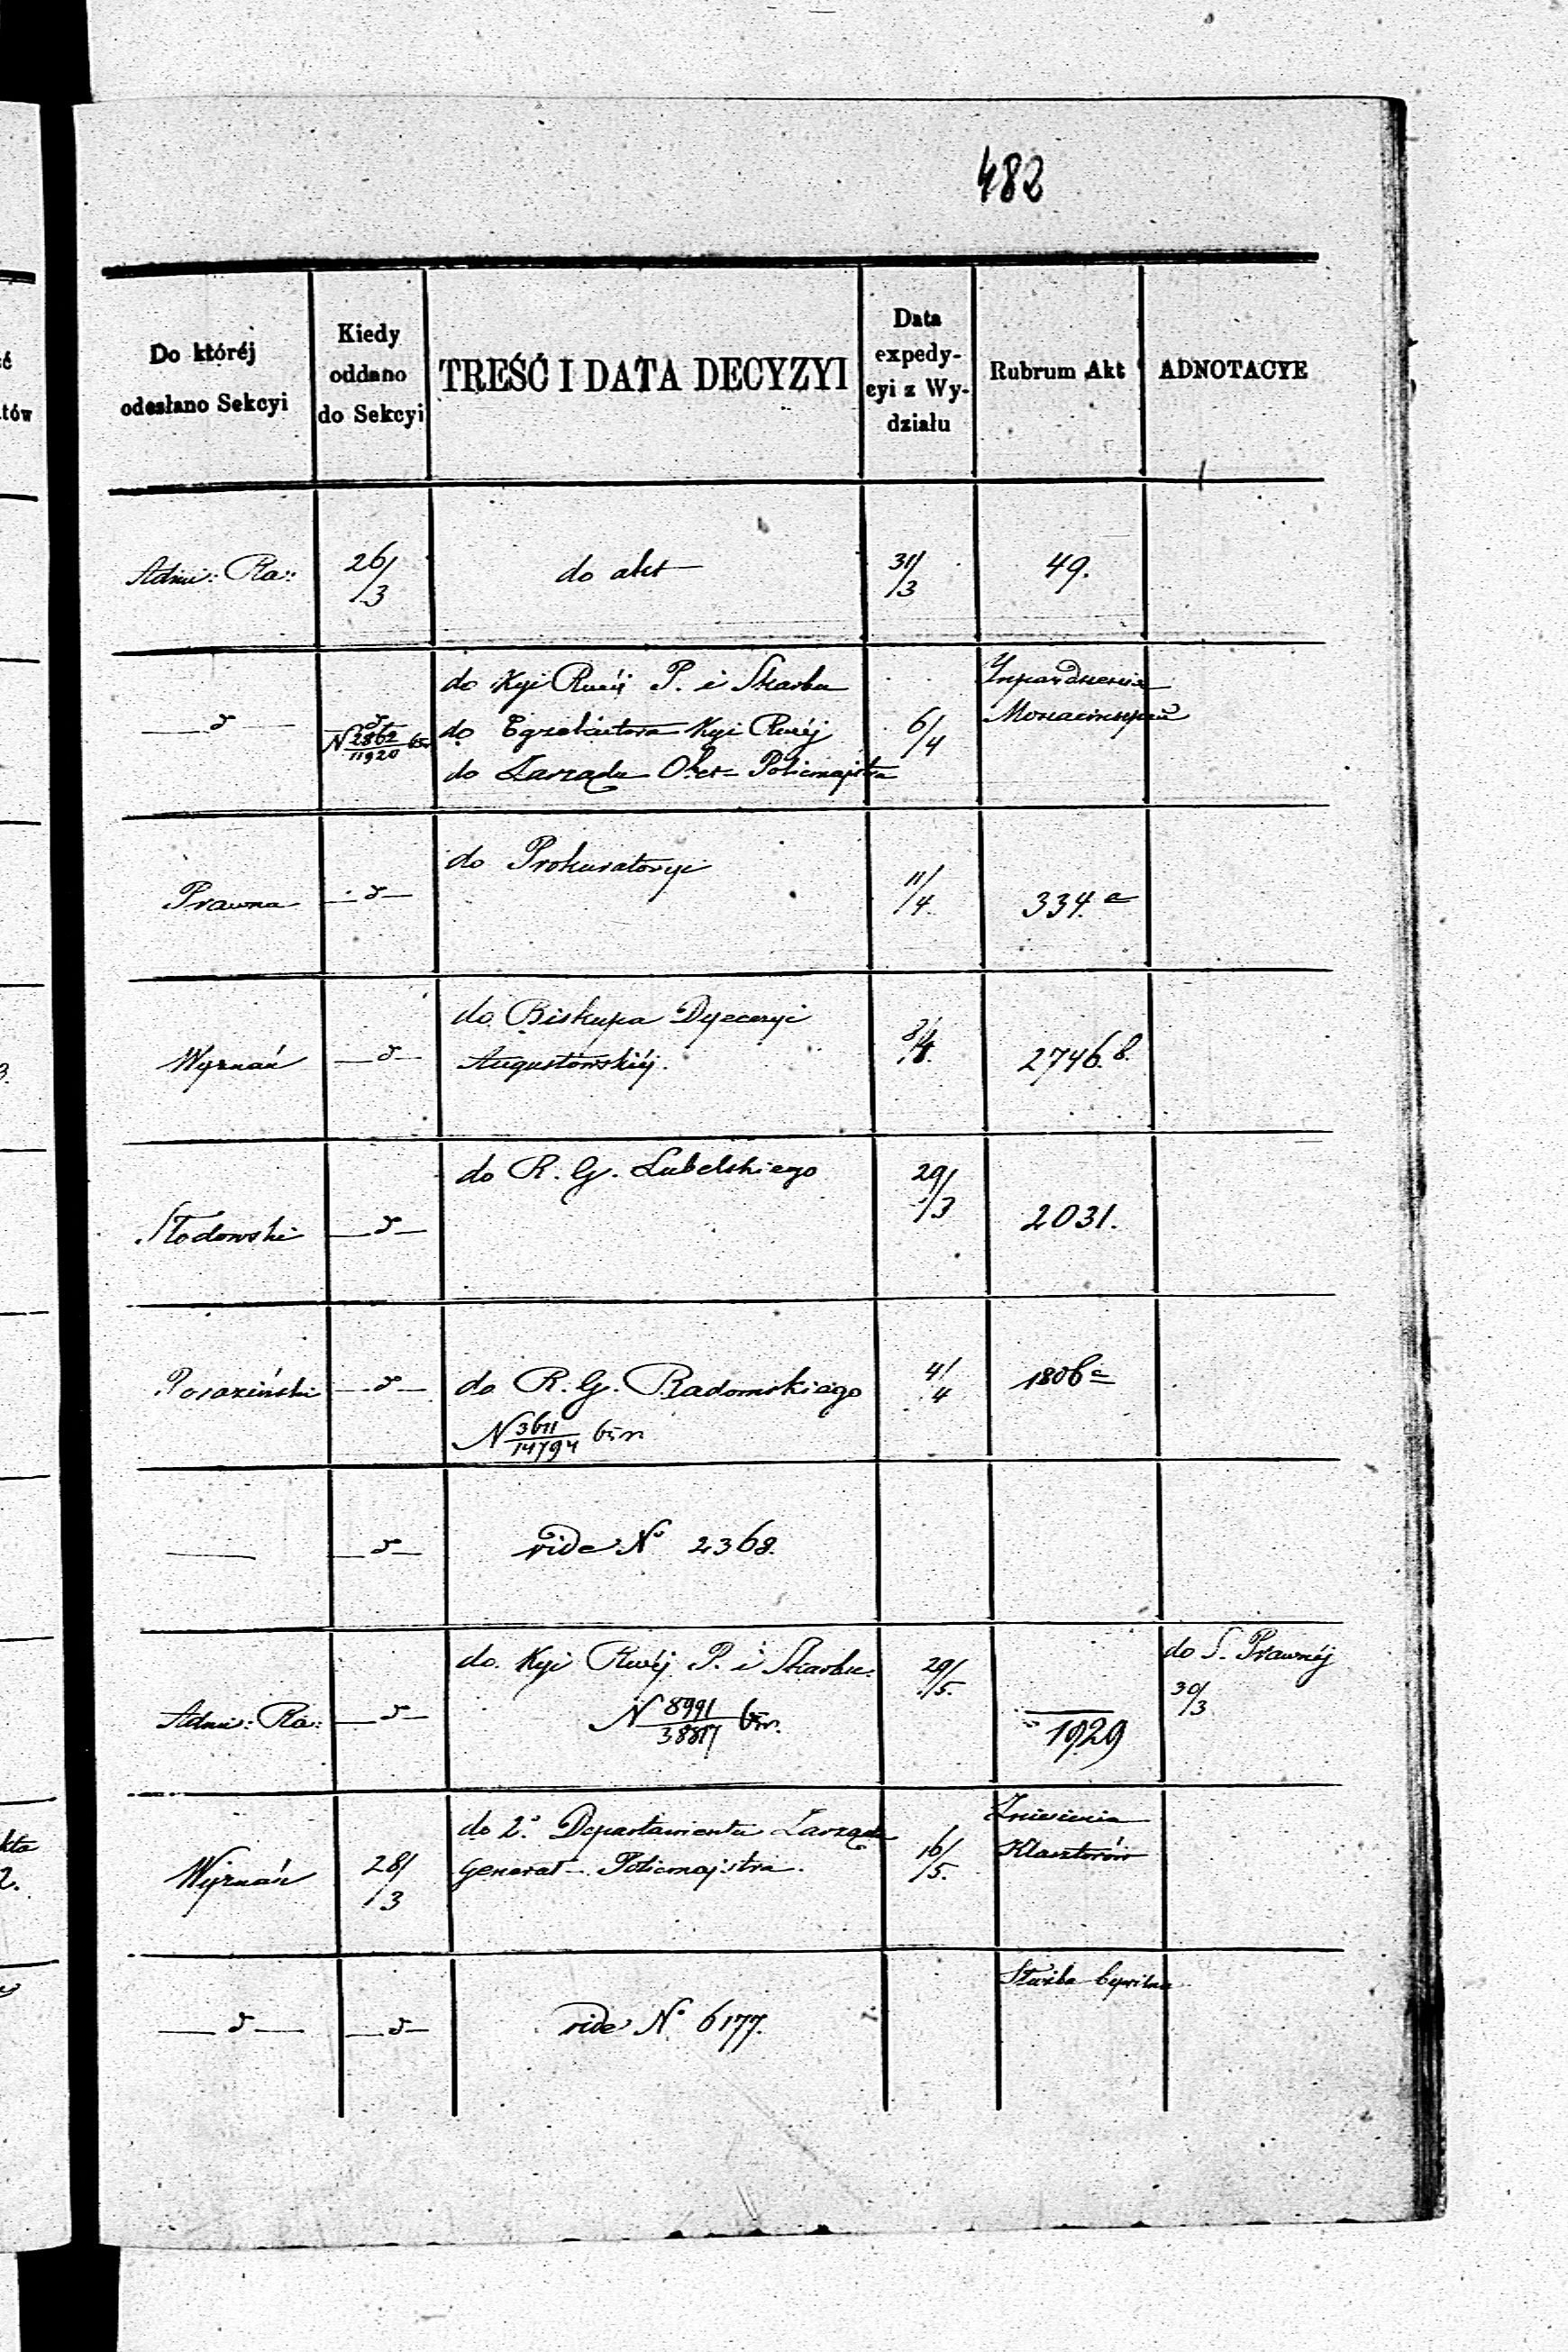 482
Do któréj
odesłano Sekcyi
Kiedy
oddano
do Sekcyi
TREŚĆ I DATA DECYZYI
Data
expedy-
cyi z Wy-
działu
Rubrum Akt
ADNOTACYE
Admi: Ra::
26/3
do akt
31/3
49.
— d —
d
N 2862/11920
do Kyi Rwéj P. i Skarbu
do Egzekutora Kyi Rwéj
do Zarządu Policmajstra
6/4
Упразднения
Монастырей
Prawna
— d —
do Prokuratoryi
11/4.
334. a
Wyznań
— d —
do Biskupa Dyecezyi
Augustowskiéj.
8/4.
2746. b.
Słodowski
— d —
do R. G. Lubelskiego
29/3
2031.
— d —
do R. G. Radomskiego
N 3611/14794 b: m
4/4
1806 c
— d —
vide No 2368.
Admi: Ra:
— d —
do Kyi Rwéj P. i Skarbu.
N 8991/38817 b: m.
29/5.
1929
do S. Prawnéj
30/3
Wyznań
28/3
do 2o Departamentu Zarządu
Generał-Policmajstra.
16/5.
Zniesienia
Klasztorów
— d —
— d —
vide No 6177.
Służba Cywilna